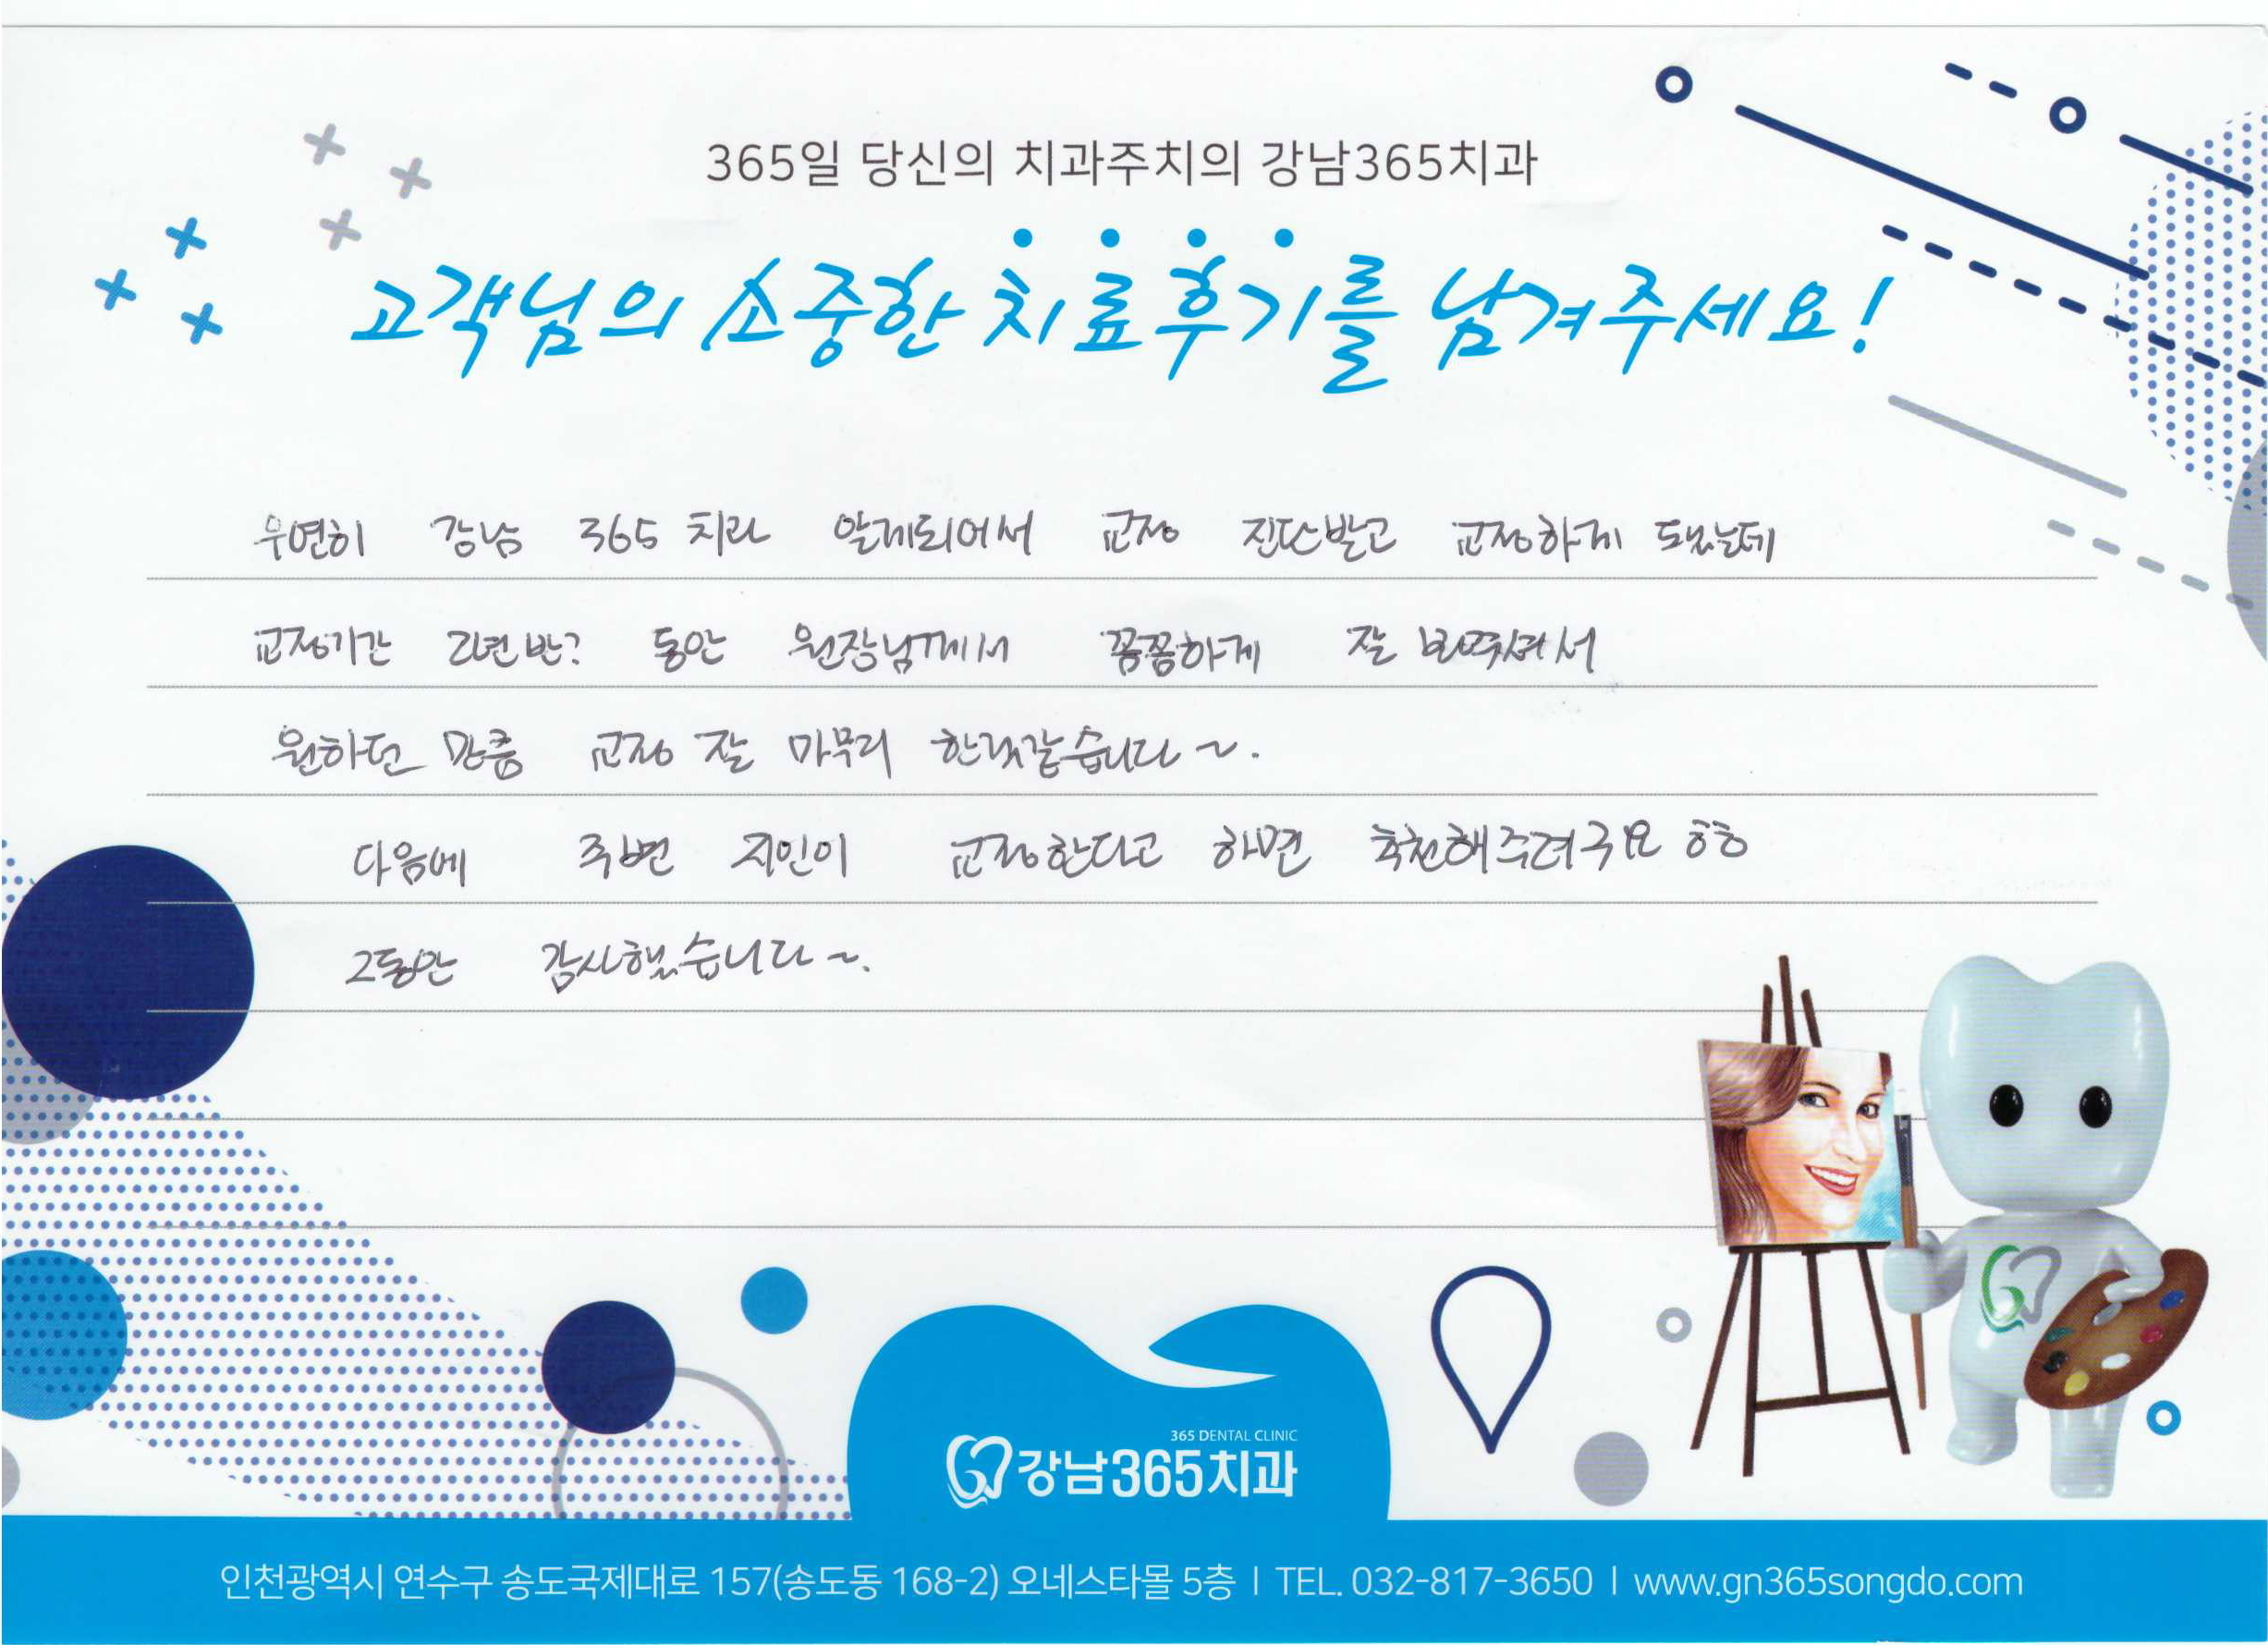 365일 당신의 치과주치의 강남365치과
고객님의 소중한 치료후기를 남겨주세요!
우연히 강남 365 치과 알게되어서 교정 진단받고 교정하게 되었는데
교정기간 2년 반? 동안 원장님께서 꼼꼼하게 잘 봐주셔서
원하던 만큼 교정 잘 마무리 한것같습니다~.
다음에 주변 지인이 교정한다고 하면 추천해주려구요 ㅎㅎ
그동안 감사했습니다~.
365 DENTAL CLINIC
강남365치과
인천광역시 연수구 송도국제대로 157(송도동 168-2) 오네스타몰 5층 | TEL. 032-817-3650 | www.gn365songdo.com